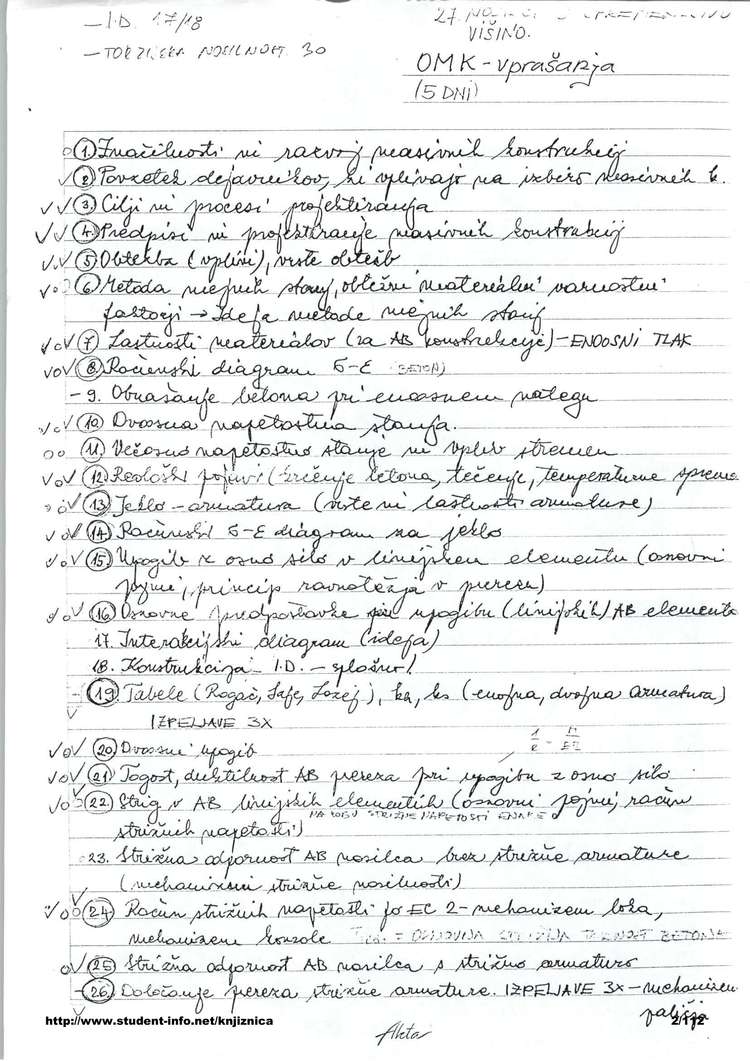 - I.D. 17/18
27.
- TORZIJSKA NOSILNOST 30
VIŠINO.
OMK - vprašanja
(5 DNI)
1. Značilnosti in razvoj masivnih konstrukcij
2. Povzetek dejavnikov, ki vplivajo na izbiro masivnih k.
3. Cilji in procesi projektiranja
4. Predpisi in projektiranje masivnih konstrukcij
5. Obtežba (vplivi), vrste obtežb
6. Metoda mejnih stanj, obtežni materialni varnostni
faktorji → Ideja metode mejnih stanj
7. Lastnosti materialov (za AB konstrukcije) - ENOOSNI TLAK
8. Računski diagram б-ε (BETON)
- 9. Obnašanje betona pri enoosnem nategu
10. Dvoosna napetostna stanja.
11. Večosno napetostno stanje in vpliv stremen
12. Reološki pojavi (krčenje betona, tečenje, temperaturne sprem.
13. Jeklo - armatura (vrste in lastnosti armature)
14. Računski б-ε diagram za jeklo
15. Upogib z osno silo v linijskem elementu (osnovni
pojmi, princip ravnotežja v prerezu)
16. Osnovne predpostavke pri upogibu (linijskih) AB elementa
17. Interakcijski diagram (ideja)
18. Konstrukcija I.D. - splošno!
19. Tabele (Rogač, Saje, Lozej), ka, ks (enojna, dvojna armatura)
IZPELJAVE 3X
20. Dvoosni upogib
21. Togost, duktilnost AB prereza pri upogibu z osno silo
22. Strig v AB linijskih elementih (osnovni pojmi, račun
NA ROBU STRIŽNE NAPETOSTI ENAKE 0
strižnih napetosti)
23. Strižna odpornost AB nosilca brez strižne armature
(mehanizmi strižne nosilnosti)
24. Račun strižnih napetosti po EC 2 - mehanizem loka,
mehanizem konzole = OSNOVNA STRIŽNA TRDNOST BETONA
25. Strižna odpornost AB nosilca s strižno armaturo
26. Določanje prereza strižne armature. IZPELJAVE 3X - mehanizem
paličja
http://www.student-info.net/knjiznica
2/112